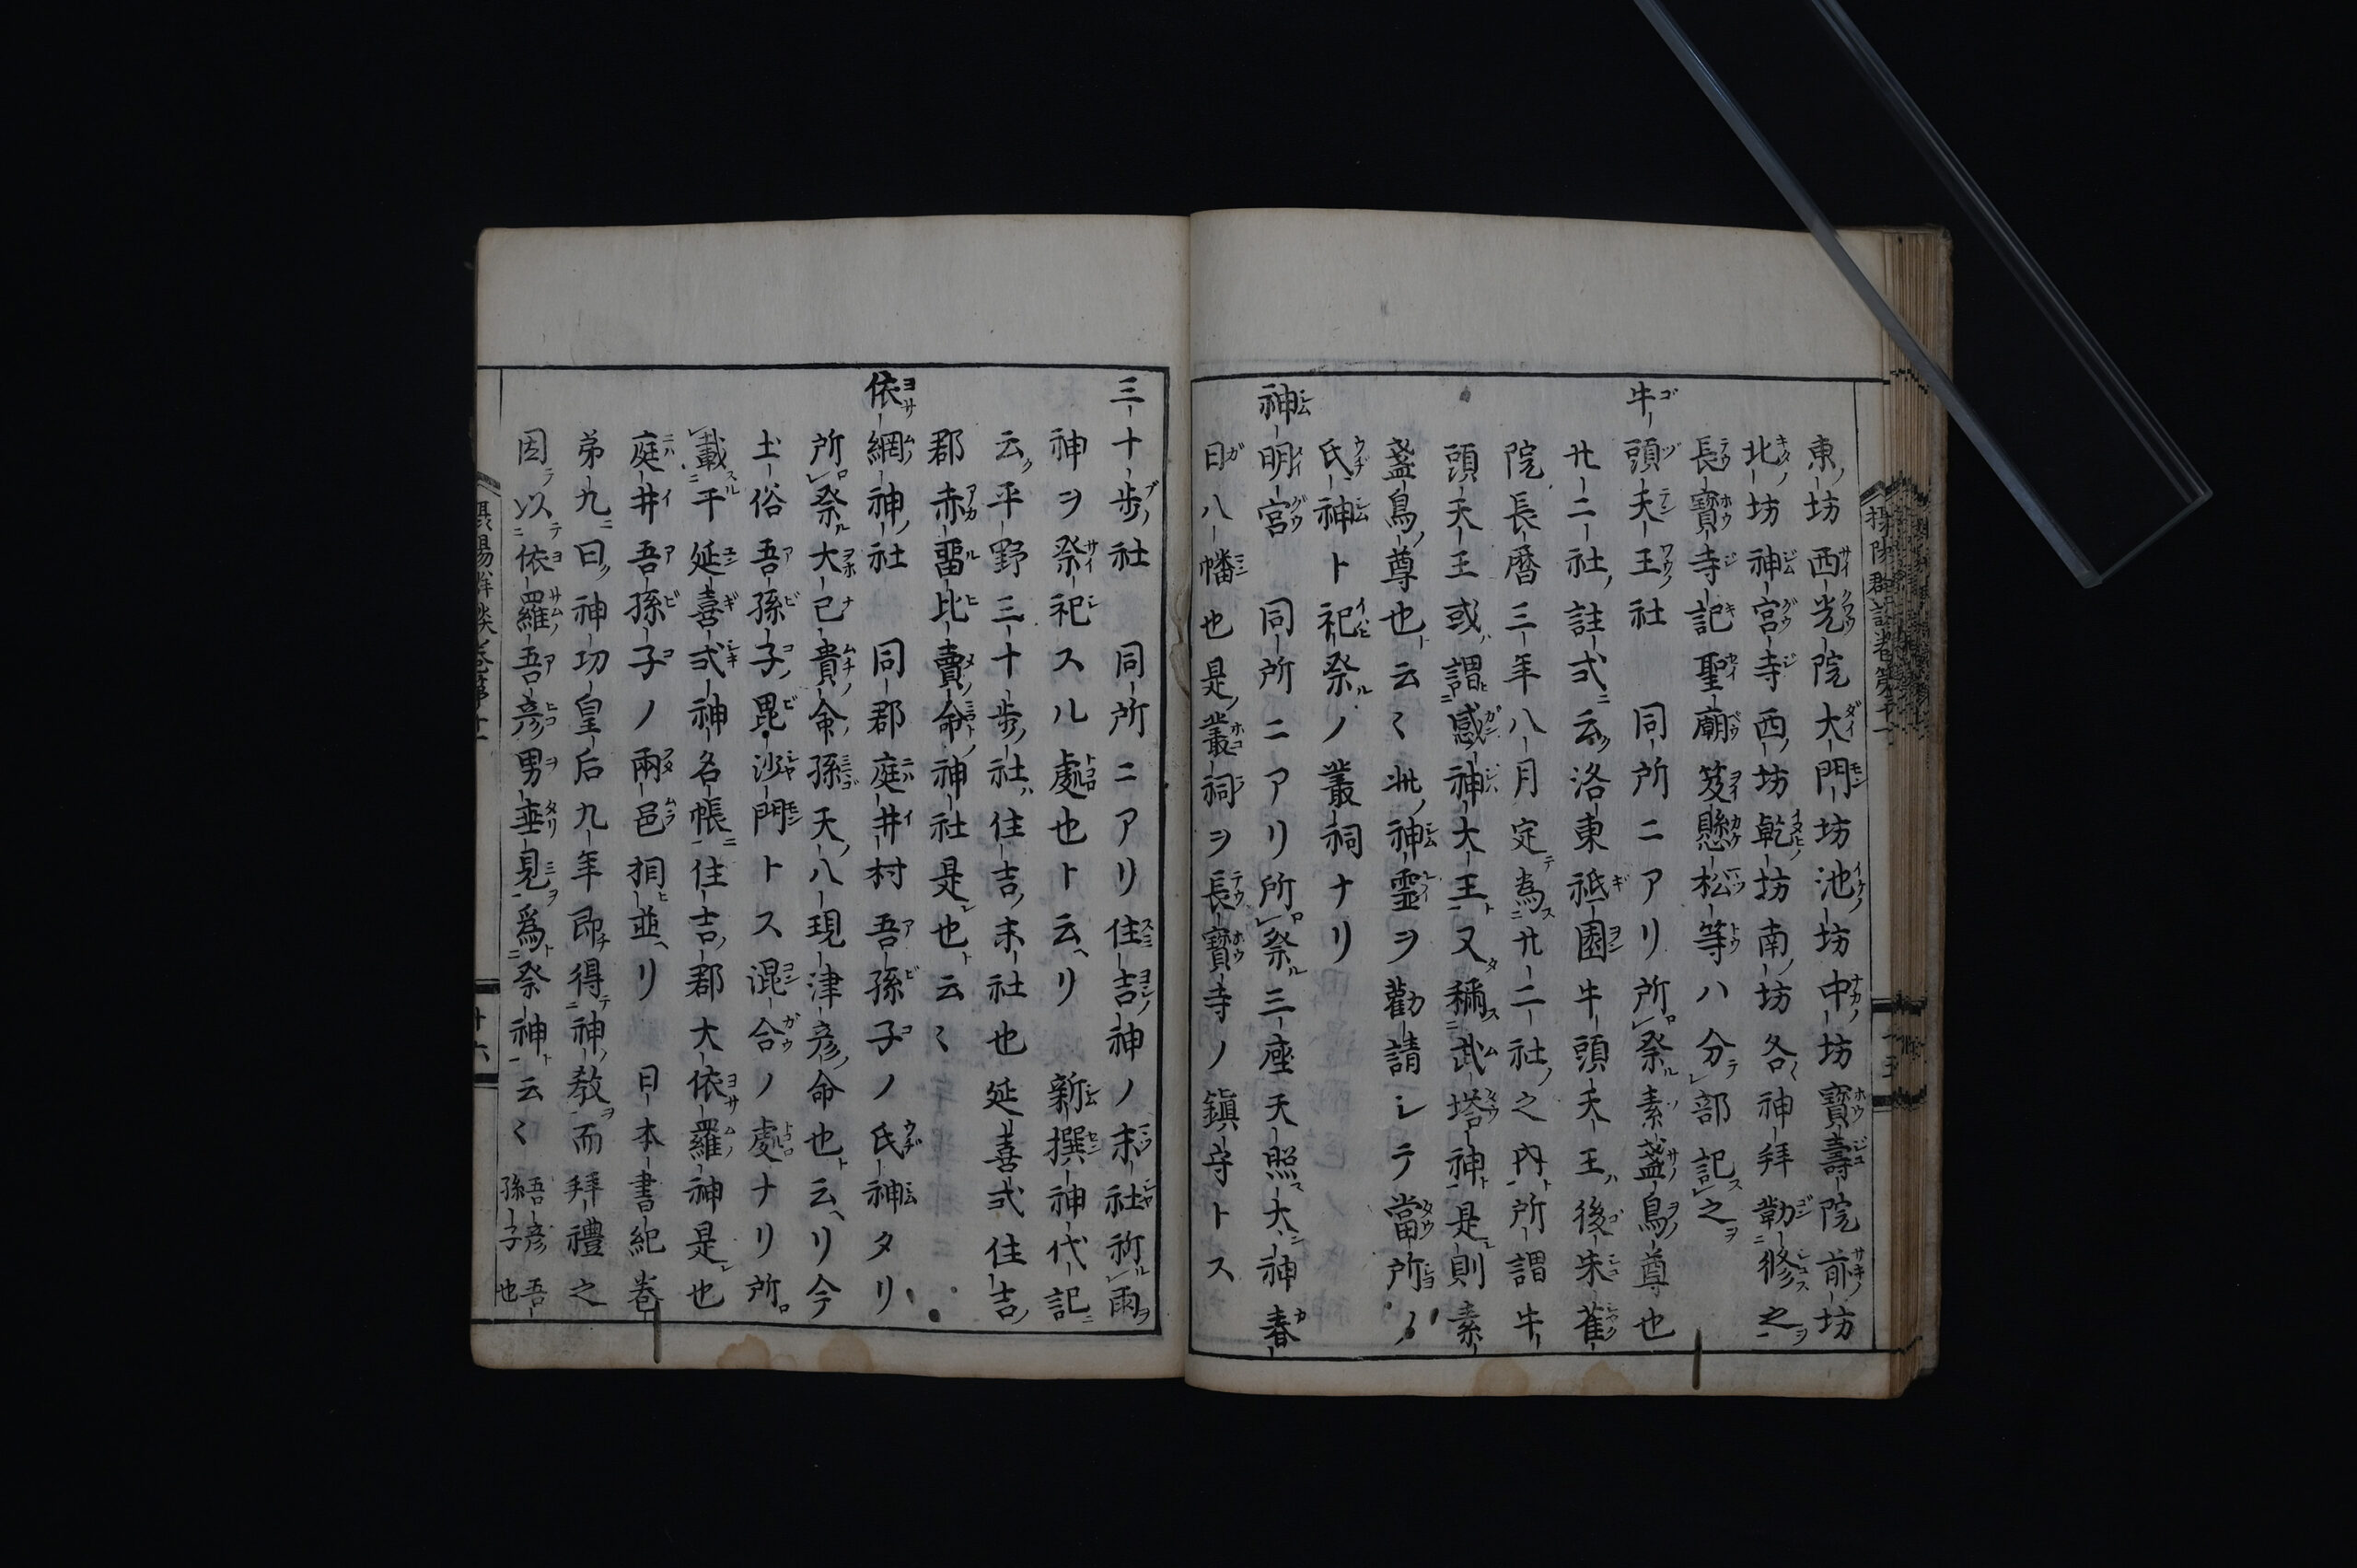 東坊西光院大門坊池坊中坊寶壽院前坊
北坊神宮寺西坊乾坊南坊各神拜勤修之
長寶寺記聖廟笈懸松等ハ分部記之
牛頭天王社　同所ニアリ所祭素盞烏尊也
廿二社註式云洛東祇園牛頭天王後朱雀
院長暦三年八月定為廿二社之内所謂牛
頭天王或謂感神大王又稱武塔神是則素
盞烏尊也云々此神霊ヲ勸請レテ當所ノ
氏神ト祀祭ノ叢祠ナリ
神明宮　同所ニアリ所祭三座天照大神春
日八幡也是叢祠ヲ長寶寺ノ鎮守トス
三十歩社　同所ニアリ住吉神ノ末社祈雨
神ヲ祭祀スル處也ト云リ　新撰神代記
云平野三十歩社住吉末社也　延喜式住吉
郡赤留比賣命神社是也云々
依網神社　同郡庭井村吾孫子ノ氏神タリ
所祭大己貴命孫天八現津彦命也云リ今
土俗吾孫子毘沙門トス混合ノ處ナリ所
載干延喜式神名帳住吉郡大依羅神是也
庭井吾孫子ノ兩邑相並リ　日本書紀巻
第九曰神功皇后九年即得神教而拜禮之
因以依羅吾彦男垂見爲祭神云々 吾彦吾
孫子也